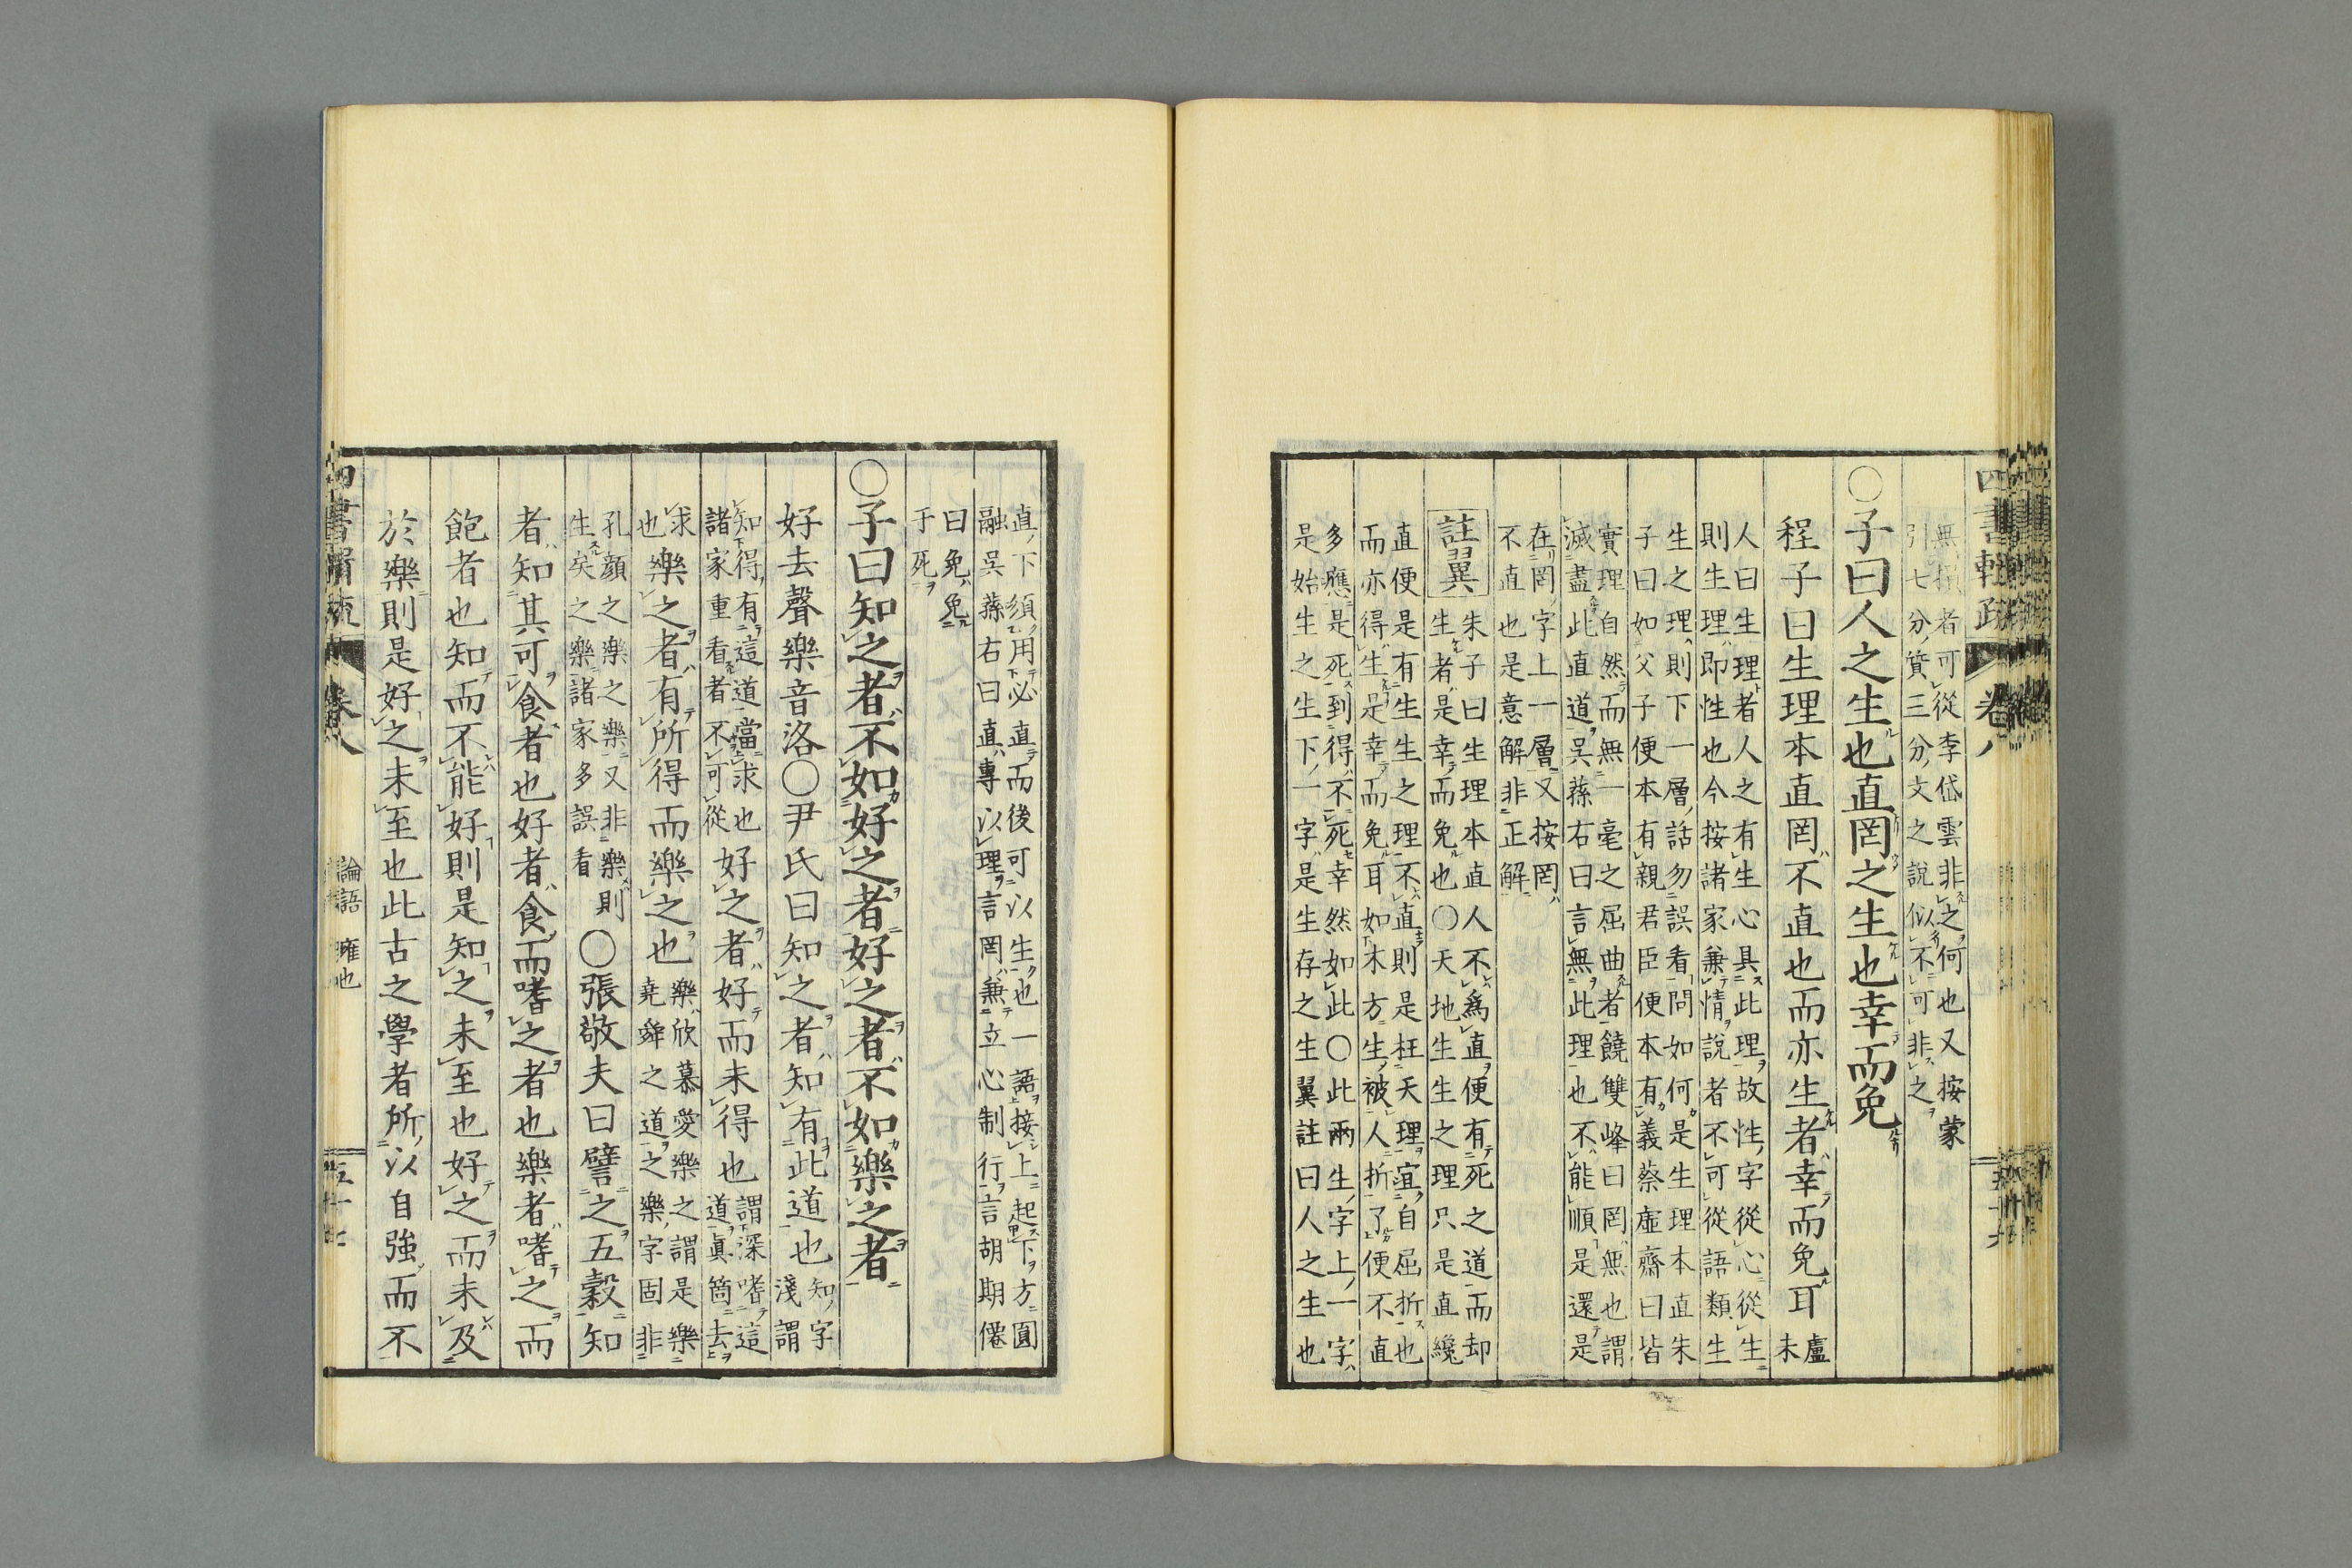 無損者可從李岱雲非之何也又按蒙
引七分質三分文之說似不可非之
○子曰人之生也直罔之生也幸而免
程子曰生理本直罔不直也而亦生者幸而免耳
盧
未
人曰生理者人之有生心具此理故性字從心從生
則生理即性也今按諸家兼情說者不可從語類生
生之理則下一層話勿誤看問如何是生理本直朱
子曰如父子便本有親君臣便本有義蔡虛齋曰皆
實理自然而無一毫之屈曲者饒雙峰曰罔無也謂
滅盡此直道吳蓀右曰言無此理也不能順是還是
在罔字上一層又按罔
不直也是意解非正解
註翼
朱子曰生理本直人不爲直便有死之道而却
生者是幸而免也○天地生生之理只是直纔
直便是有生生之理不直則是枉天理宜自屈折也
而亦得生是幸而免耳如木方生被人折了便不直
多應是死到得不死幸然如此○此兩生字上一字
是始生之生下一字是生存之生翼註曰人之生也
四書 卷八
直下須用必直而後可以生也一語接上起下方圓
融吳蓀右曰直專以理言罔兼立心制行言胡期僊
曰免免
于死
○子曰知之者不如好之者好之者不如樂之者
好去聲樂音洛○尹氏曰知之者知有此道也
知字
淺謂
知得有這道當求也
諸家重看者不可從
好之者好而未得也
謂深嗜這
道眞箇去
求
也
樂之者有所得而樂之也
樂欣慕愛樂之謂是樂
堯舜之道之樂字固非
孔顏之樂之樂又非樂則
生矣之樂諸家多誤看
○張敬夫曰譬之五穀知
者知其可食者也好者食而嗜之者也樂者嗜之而
飽者也知而不能好則是知之未至也好之而未及
於樂則是好之未至也此古之學者所以自強而不
論語 雍也
五十七